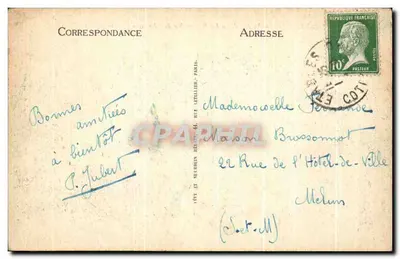 CORRESPONDANCE
ADRESSE
REPUBLIQUE FRANÇAISE
10c
Bonnes
amitiés
à bientôt
P. Jubert
Mademoiselle
Maison Brossonnot
22 Rue de l'Hôtel-de-Ville
Melun
(S.-et-M.)